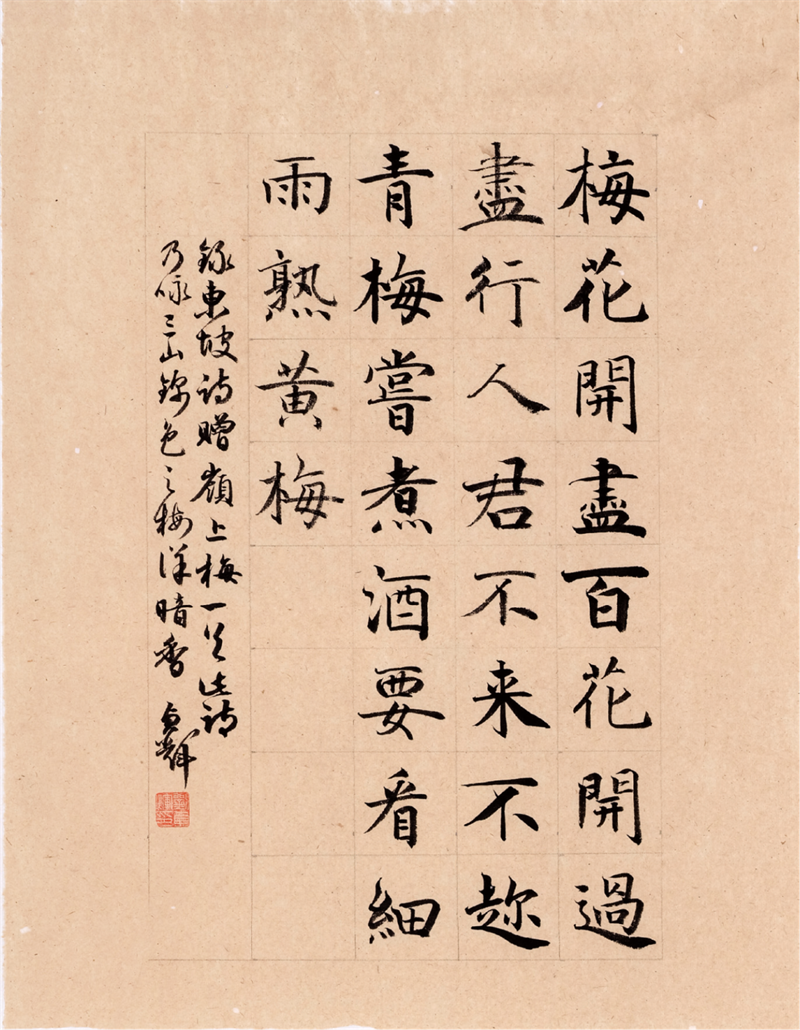 梅花開盡百花開過
盡行人君不来不趂
青梅嘗煮酒要看細
雨熟黄梅
録東坡詩贈嶺上梅一首此詩
乃咏三山錦色之梅洋暗香